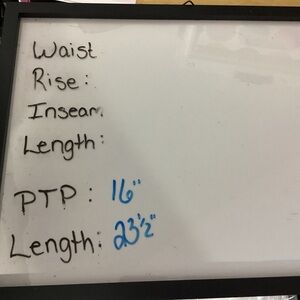 Waist
Rise:
Inseam.
Length:
PTP: 16"
Length: 23½"